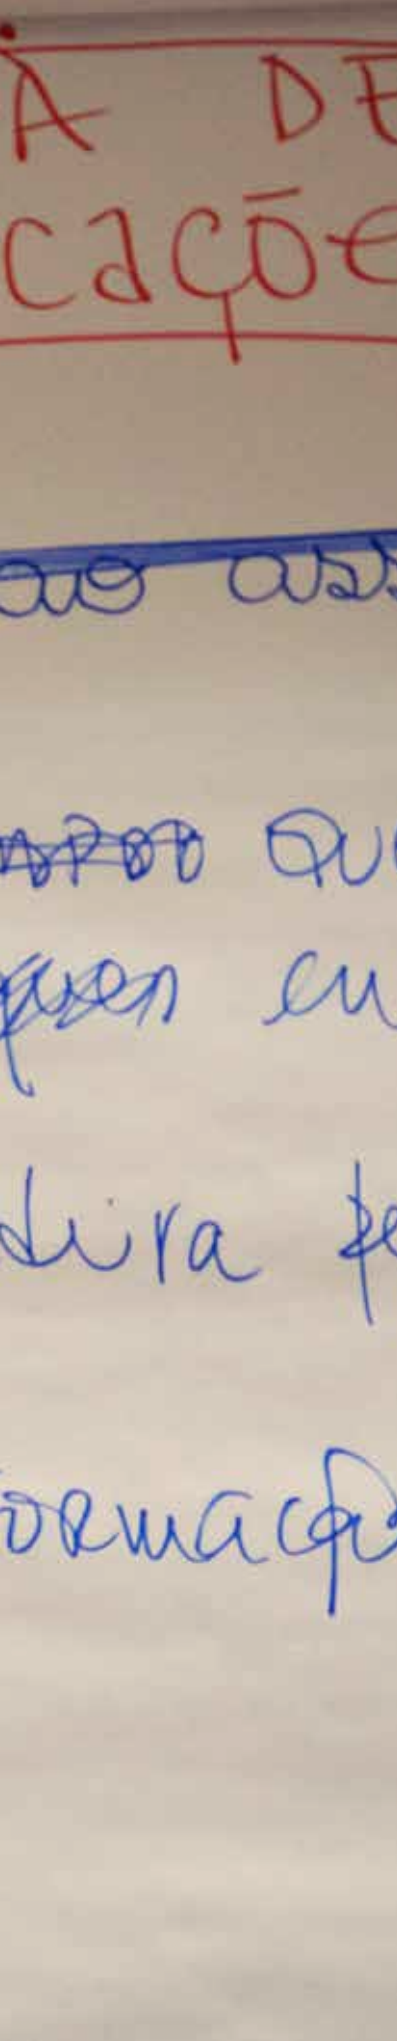 A DE
caçõe
ao ass
Qu
en
deira pe
ormaçã